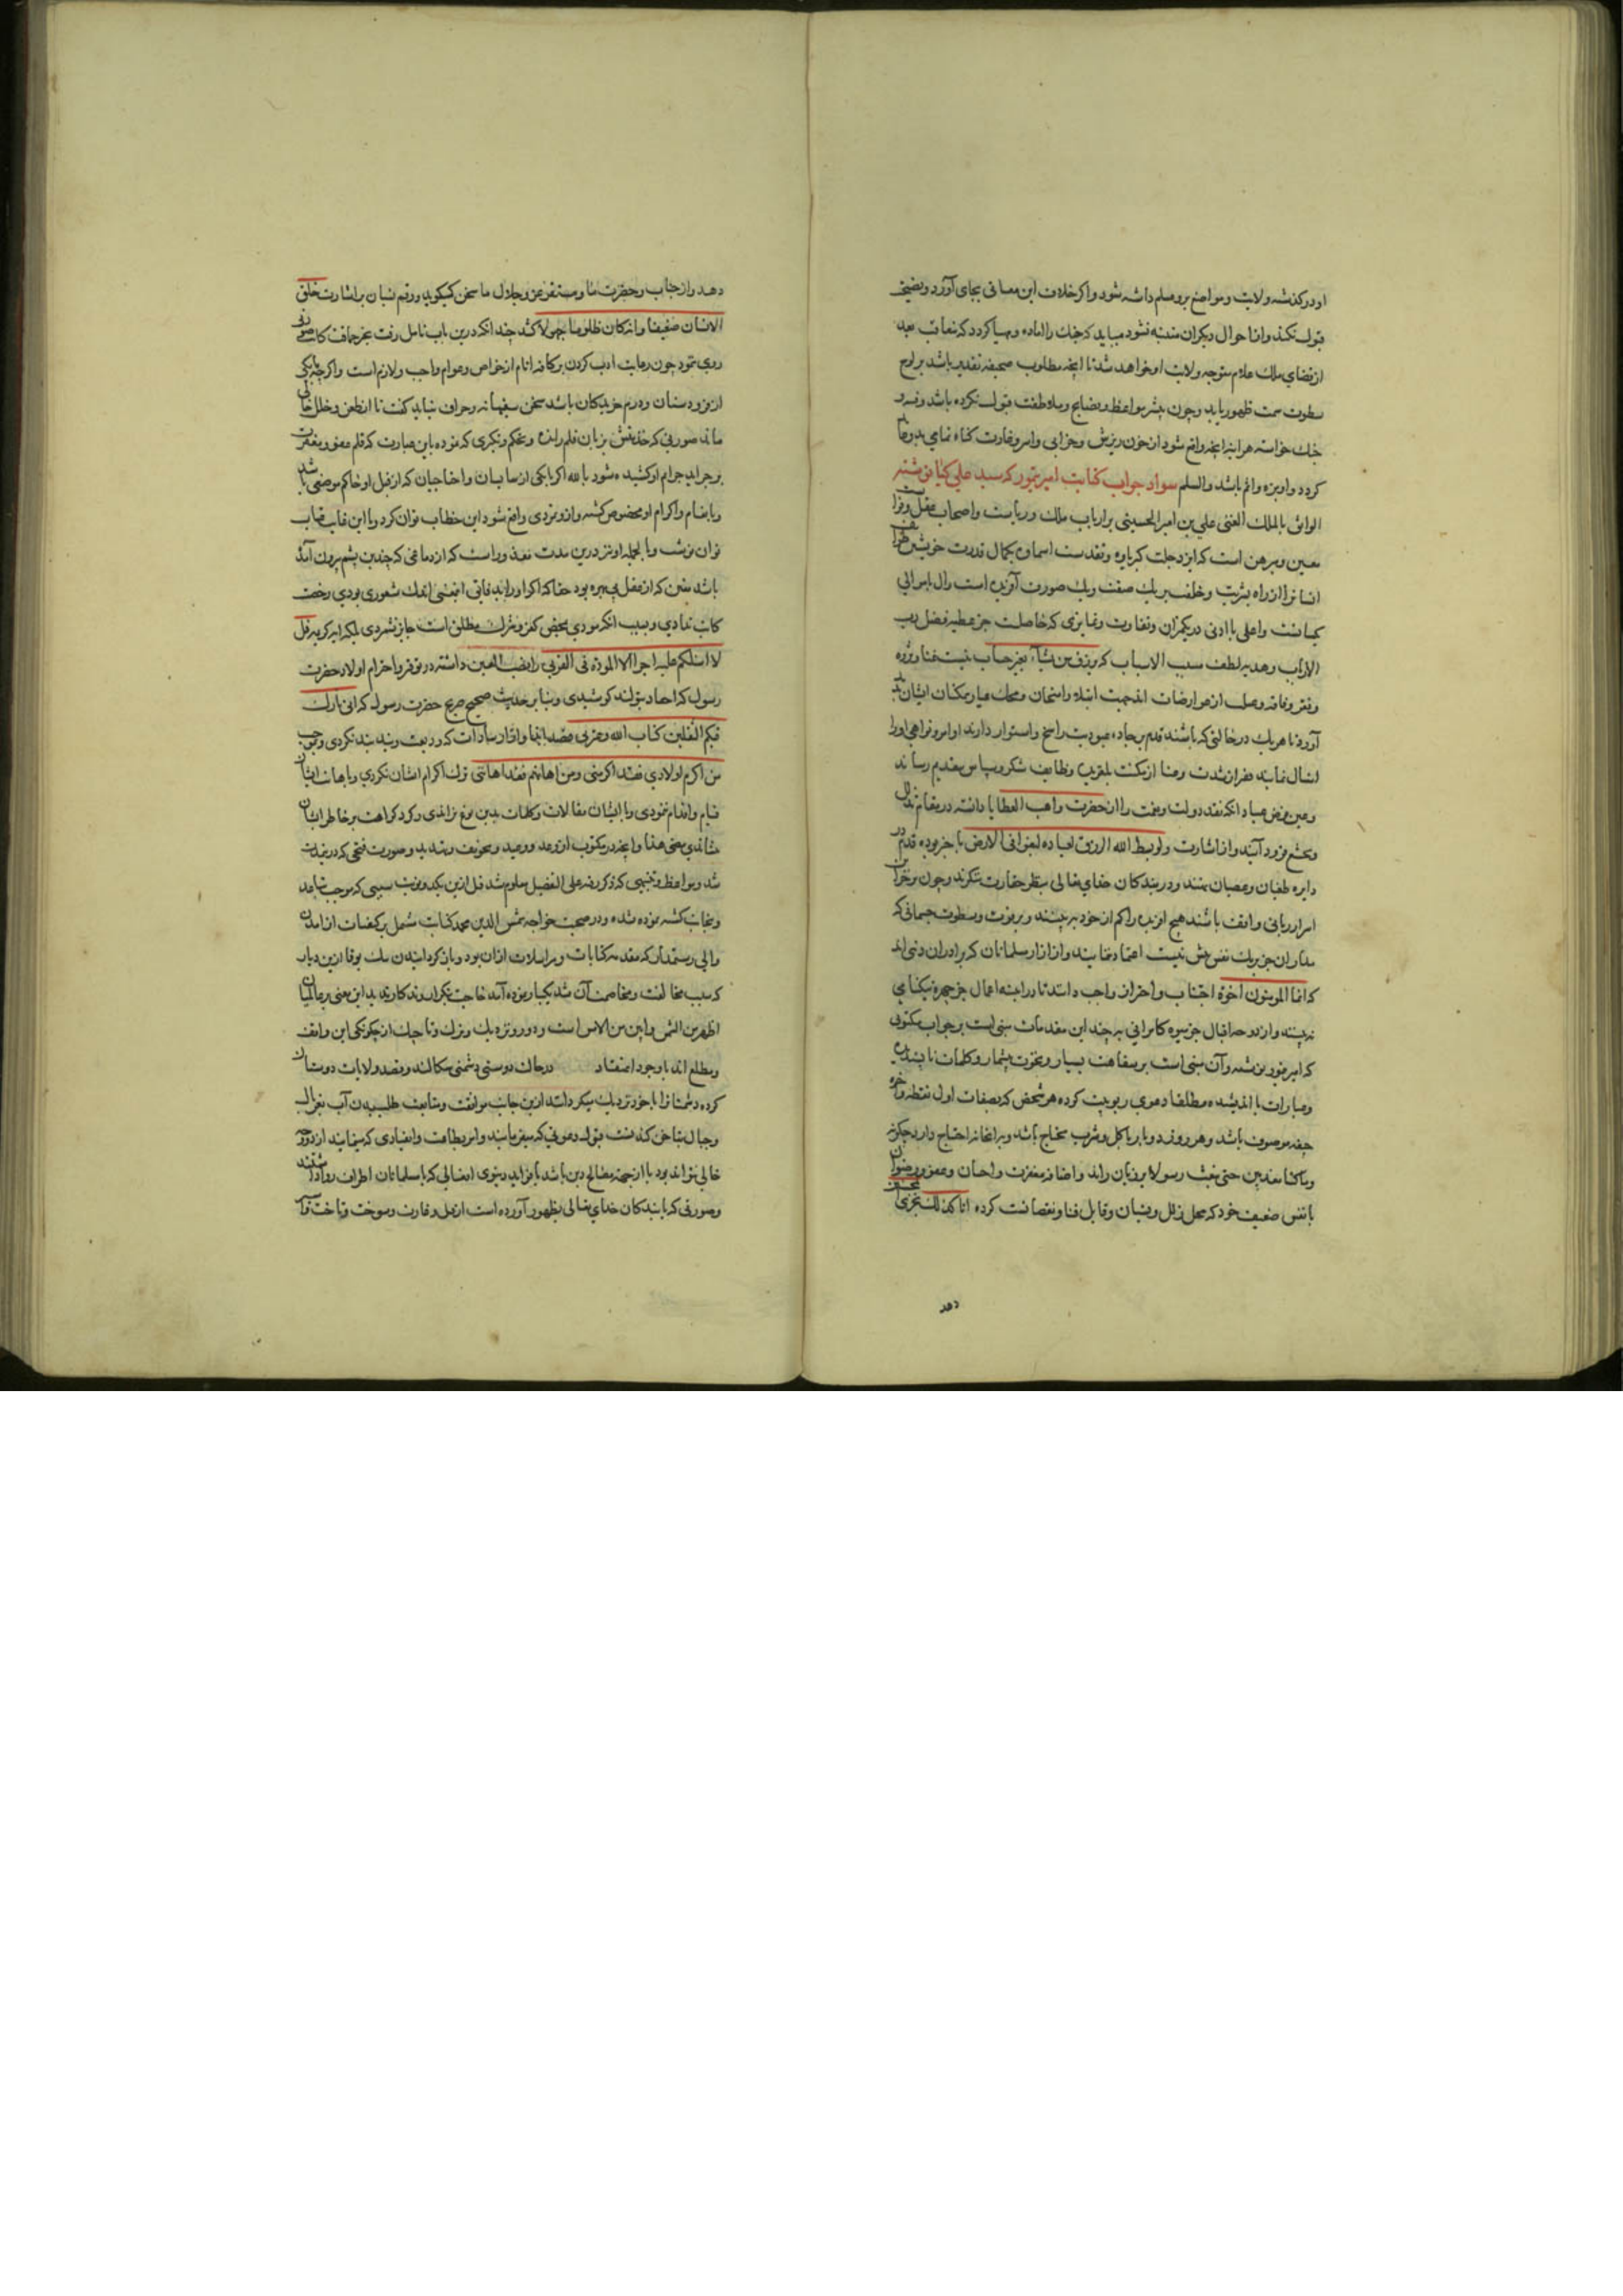 او درگذشته ولایت و مواضع برو مسلم داشته شود و اکر خلاف این معانی بجای آورد و نصیحت
قبول نکند و از احوال دیکران متنبه نشود میباید که جنك را اماده و مهیا کردد که متعاقب بعد
از قضای ملك علام متوجه ولایت او خواهد شد تا آنچه مطلوب صحیفه تقدیر باشد بر لوح
سطوت سمت ظهور یابد و چون پیشتر مواعظ و نصایح و ملاطفت قبول نکرده باشد و فتنه و
جنك خواسته هر اینه آنچه واقع شود از خون ریزش و خرابی و اسر و غارت کناه تمامی بدو عاید
کردد و او بزه و اثم باشد والسلم سواد جواب کتابت امیر تیمور که سید علی کیا نوشته
الواثق بالملك الغنی علی بن امیر الحسینی بر ارباب ملك و ریاست و اصحاب عقل و فراست
معین و مبرهن است که ایزد جلت کبریاوه و تقدست اسماوه بکمال قدرت خویش طوایف
انسانرا از راه بشریت و خلقت بر یك صفت و یك صورت آفریده است و ال با موالی
یکسانست و اعلی با ادنی در یکزان و تفاوت و تمایزی که حاصلست جز عطیه فضل رب
الارباب و هدیه لطف مسبب الاسباب که یرزق من یشآء بغیر حساب نیست غنا و ثروه
و فقر و فاقه و عسل از عوارضات اند جهت ابتلاء و امتحان و محك عیار ممکنات ایشان پدید
آورد تا هر یك در حالتی که باشند قدم بر جاده عبودیت راسخ و استوار دارند اوامر و نواهی او را
امتثال نمایند فقرا از شدت و عنا از مکنت بلهقریب وظایف شکر و سپاس بتقدیم رسانند
و عین فرض عباد آنکه نقد دولت و نعمت را از حضرت واهب العطایا دانسته در مقام تذلل
و تخشع فرود آیند و از اشارت ولو بسط الله الرزق لعباده لبغوا فی الارض با خبر بوده قدم در
دایره طغیان و عصیان ننهند و در بندکان خدای تعالی بنظر حقارت ننکرند و چون بر خزاین
اسرار ربانی واقف باشند هیچ افریده را کم از خود نه بینند و بر قوت و سطوت جسمانی که
مدار ان جز بر یك نفس بیش نیست اعتماد ننمایند و از ازار مسلمانان که برادران دینی اند
که انما المومنون اخوة اجتناب و احتراز واجب دانند تا در اینه اعمال جز چهره نیکنامی
نه بینند و از دوحه اقبال جز میوه کامرانی نه چینند این مقدمات مبنی است بر جواب مکتوبی
که امیر تیمور نوشته و آن مبنی است بر سفاهت بسیار و نخوت بیشمار و کلمات ناپسندیده
و عبارات نا اندیشیده مطلقا دعوی ربوبیت کرده هر شخص که بصفات اول نطفه و آخره
جیفه موصوف باشد و هر روز دو بار باکل و شرب محتاج باشد و بدانجانه احتیاج دارد چکونه
وما کنا معذبین حتی نبعث رسولا بر زبان راند و اضافه مغفرت و احسان و عفو و رضوان
با نفس ضعیف خود که محل زلل و نسیان و قابل فنا و نقصانست کرده انا کذلك نجزی المحسنین
دهد
دهد و از جناب و حضرت ما و مستقر عز و جلال ما سخن کیکوید و رقم نسیان بر اشارت خلق
الانسان ضعیفا وانه کان ظلوما جهولا کشد چندانکه درین باب تامل رفت بجز حماقت کاتب صورتی
روی ننمود چون رعایت ادب کردن بر کافه انام از خواص و عوام واجب و لازم است و اکر چه یکی
از فرودستان و درم خریدکان باشد سخن سفیهانه و جزاف نباید کفت تا از طعن و خلل خالی
ماند صورتی که حد نفس بر زبان قلم رانده و تحکم و تکبری که نموده باین عبارت که قلم عفو و مغفرت
بر جراید جرایم او کشیده شود بالله اکر بایکی از سایسان و احتاجیان که از قبل او حاکم موضعی باشد
و بانعام و اکرام او مخصوص کشته و ازو تمردی واقع شود این خطاب توان کرد و یا این عتاب بجناب
توان نوشت و بالجمله او نیز درین مدت معذور است که از دماغی که چندین پشم بیرون آمده
باشد سخن که از عقل بی بهره بود حقا که اکر او را بدقایق افضی اندك شعوری بودی رخصت
کاتب ندادی و بسبب آنکه مودی بمحض کفر و شرك مطلق است جایز نشمردی بلکه ایه کریمه قل
لا اسئلکم علیه اجرا الا المودة فی القربی را نصب العین داشته در توقیر و احترام اولاد حضرت
رسول که احفاد بتولند کوشیدی و بنابر حدیث صحیح صریح حضرت رسول که انی تارك
فیکم الثقلین کتاب الله و عترتی قصد ایذا و ازار سادات که ودیعت ویند بند نکردی و بموجب
من اکرم اولادی فقد اکرمنی ومن اهانهم فقد اهاننی ترك اکرام ایشان نکردی و باهانت ایشان
قیام و اقدام ننمودی و با ایشان مقالات و کلمات بدین نوع نراندی و کرد کراهت بر خاطر ایشان
ننشاندی یعنی هذا و آنچه در مکتوب از وعد و وعید و تخویف و تهدید و صورت فتحی که در
شد و مواعظ و تنبیهی که ذکر رفته علی التفصیل معلوم شد قبل ازین بیکدو نوبت سببی که موجب تباعد
و تجانب کشته نموده شده و در صحبت خواجه شمس الدین محمد کتابت مشتمل بر کیفیات از امدن
والی رستمدار که مقدمه کتابات و مراسلات ازان بود و باز کردانیدن ملك بوقا ازین دیار
که سبب مخالفت و مخاصمت آن شد یکبار نموده آمد حاجت تکرار و تذکار ندید این معنی بر عالمیان
اظهر من الشمس و ابین من الامس است و دور و نزدیك و ترك و تاجیك از چکونکی این واقف
و مطلع اند با وجود اعتقاد در حالت دوستی دشمنی سکالند و قصد ولایات دوستان
کرده دشمنانرا با خود نزدیك میکردانند ازین جانب موافقت و متابعت طلبیدن آب بغربال
و جبال بناخن کندنست قبول دعوتی که میفرمایند و امر بطاعت و انقیادی که مینمایند از دو وجه
خالی نتواند بود یا از جهت مصالح دین باشد یا فواید دنیوی افعالی که با مسلمانان اطراف روا داشتند
و صورتی که با بندکان خدای تعالی بظهور آورده است از قتل و غارت و سوخت و تاخت